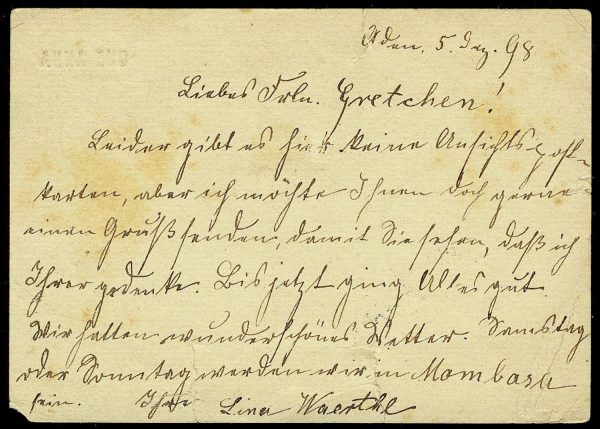 Aden, 5. Dez. 98
Liebes Frln. Gretchen!
Leider gibt es hier keine Ansichtspost-
karten, aber ich möchte Ihnen doch gerne
einen Gruß senden, damit Sie sehen, daß ich
Ihrer gedenke. Bis jetzt ging Alles gut
Wir hatten wunderschönes Wetter. Samstag
oder Sonntag werden wir in Mombasa
sein. Ihre Lina